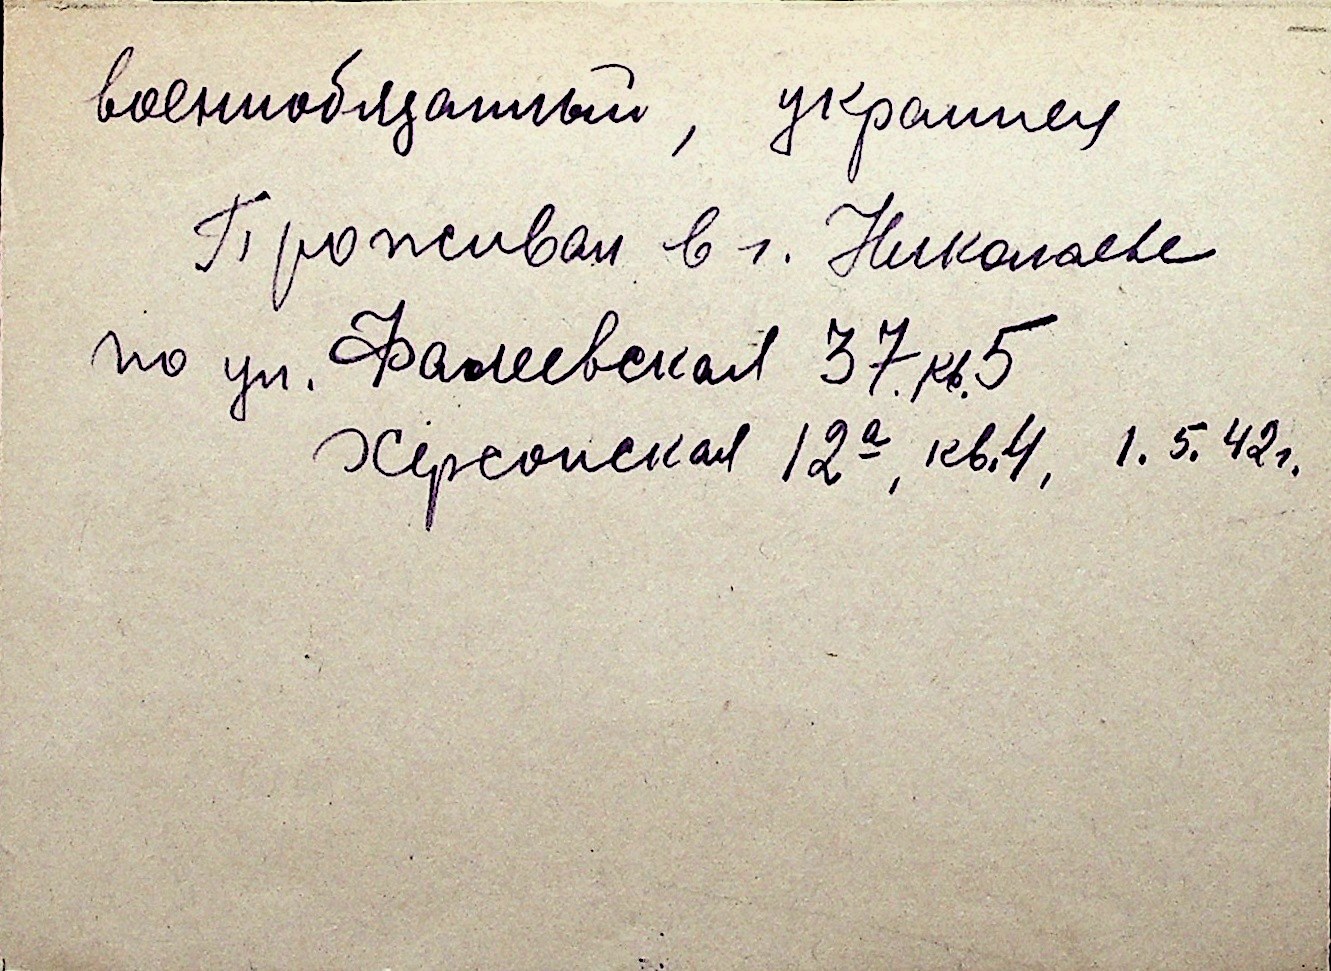 военнообязанный, украинец
Проживал в г. Николаеве
по ул. Фалеевская 37. кв. 5
Херсонская 12а, кв. 4, 1. 5. 42 г.